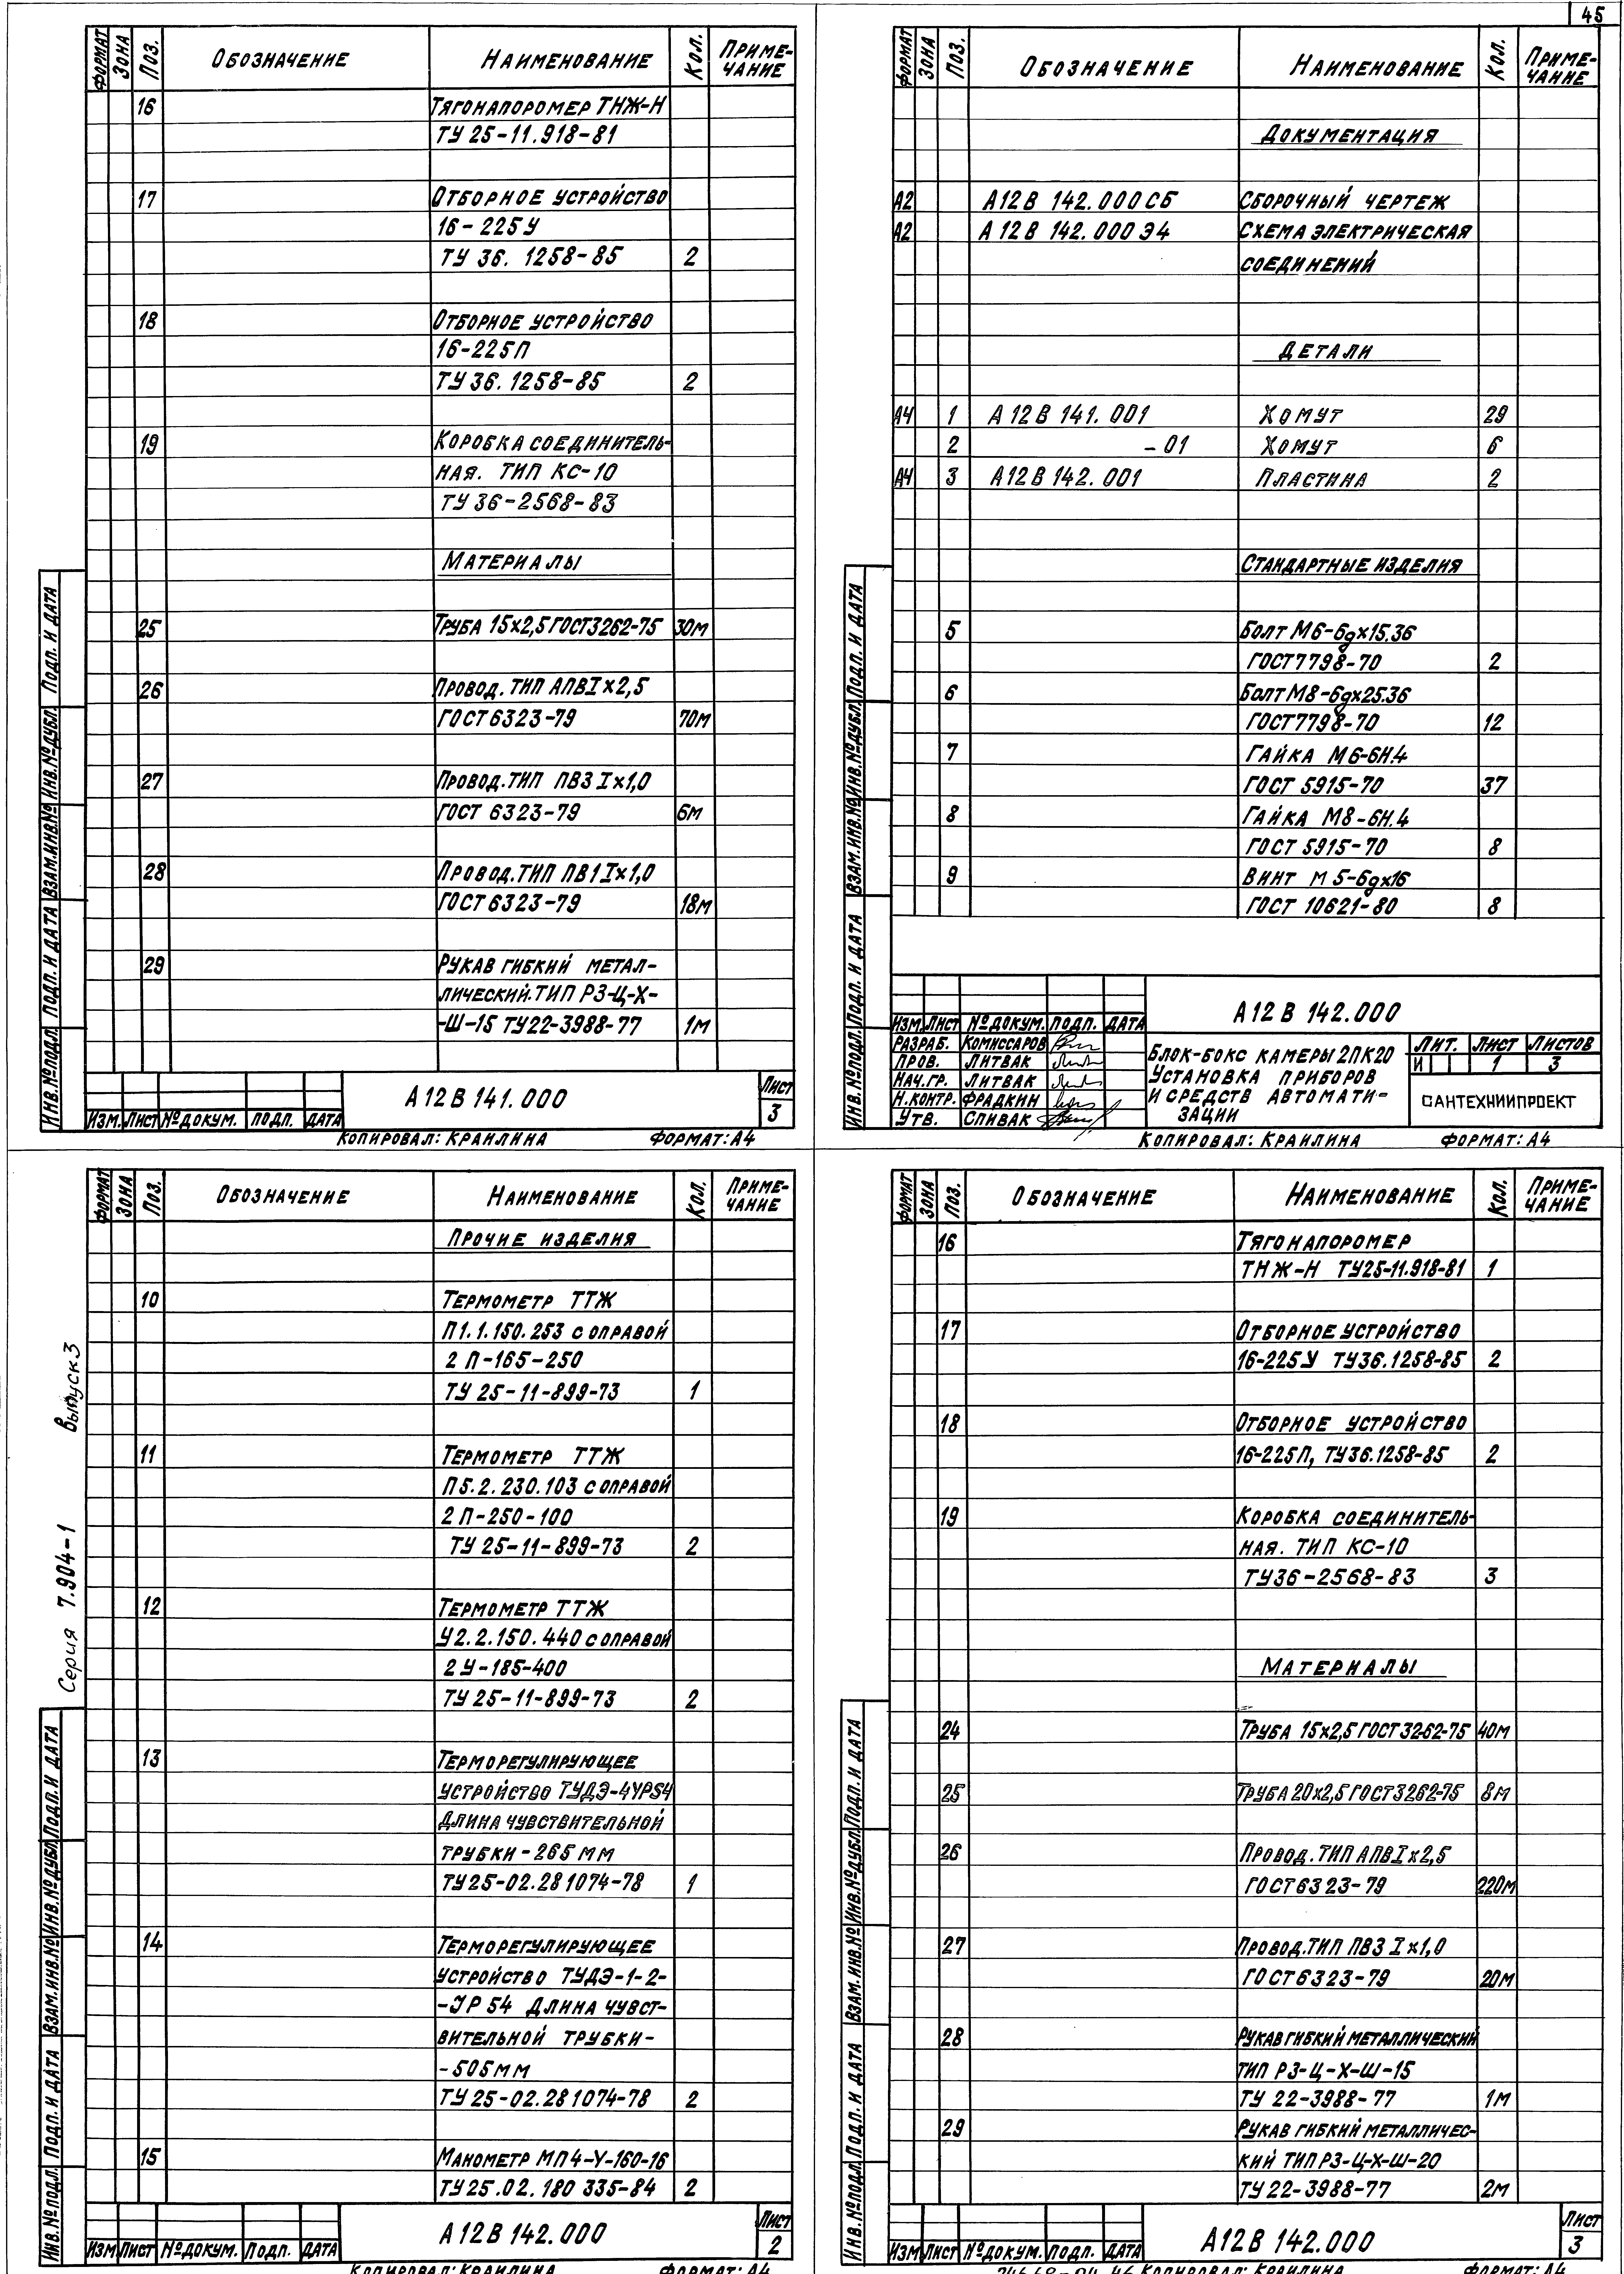 45
ФОРМАТ ЗОНА ПОЗ. ОБОЗНАЧЕНИЕ НАИМЕНОВАНИЕ КОЛ. ПРИМЕ-
ЧАНИЕ
16 ТЯГОНАПОРОМЕР ТНЖ-Н
ТУ 25-11.918-81
17 ОТБОРНОЕ УСТРОЙСТВО
16-225У
ТУ 36. 1258-85 2
18 ОТБОРНОЕ УСТРОЙСТВО
16-225П
ТУ 36. 1258-85 2
19 КОРОБКА СОЕДИНИТЕЛЬ-
НАЯ. ТИП КС-10
ТУ 36-2568-83
МАТЕРИАЛЫ
25 ТРУБА 15х2,5 ГОСТ3262-75 30М
26 ПРОВОД. ТИП АПВ1х2,5
ГОСТ 6323-79 70М
27 ПРОВОД. ТИП ПВ3 1х1,0
ГОСТ 6323-79 6М
28 ПРОВОД. ТИП ПВ1 1х1,0
ГОСТ 6323-79 18М
29 РУКАВ ГИБКИЙ МЕТАЛ-
ЛИЧЕСКИЙ. ТИП РЗ-Ц-Х-
-Ш-15 ТУ22-3988-77 1М
ИНВ.№ПОДЛ. ПОДП. И ДАТА ВЗАМ.ИНВ.№ ИНВ.№ДУБЛ. ПОДП. И ДАТА
ИЗМ. ЛИСТ №ДОКУМ. ПОДП. ДАТА
А12В 141.000
ЛИСТ
3
КОПИРОВАЛ: КРАИЛИНА ФОРМАТ: А4
ФОРМАТ ЗОНА ПОЗ. ОБОЗНАЧЕНИЕ НАИМЕНОВАНИЕ КОЛ. ПРИМЕ-
ЧАНИЕ
ДОКУМЕНТАЦИЯ
А2 А12В 142.000СБ СБОРОЧНЫЙ ЧЕРТЕЖ
А2 А12В 142.000Э4 СХЕМА ЭЛЕКТРИЧЕСКАЯ
СОЕДИНЕНИЙ
ДЕТАЛИ
А4 1 А12В 141.001 ХОМУТ 29
2 -01 ХОМУТ 6
А4 3 А12В 142.001 ПЛАСТИНА 2
СТАНДАРТНЫЕ ИЗДЕЛИЯ
5 БОЛТ М6-6gх15.36
ГОСТ7798-70 2
6 БОЛТ М8-6gх25.36
ГОСТ7798-70 12
7 ГАЙКА М6-6Н.4
ГОСТ 5915-70 37
8 ГАЙКА М8-6Н.4
ГОСТ 5915-70 8
9 ВИНТ М5-6gх16
ГОСТ 10621-80 8
ИНВ.№ПОДЛ. ПОДП. И ДАТА ВЗАМ.ИНВ.№ ИНВ.№ДУБЛ. ПОДП. И ДАТА
А12В 142.000
ИЗМ. ЛИСТ №ДОКУМ. ПОДП. ДАТА
РАЗРАБ. КОМИССАРОВ
ПРОВ. ЛИТВАК
НАЧ.ГР. ЛИТВАК
Н.КОНТР. ФРАДКИН
УТВ. СПИВАК
БЛОК-БОКС КАМЕРЫ 2ПК20
УСТАНОВКА ПРИБОРОВ
И СРЕДСТВ АВТОМАТИ-
ЗАЦИИ
ЛИТ. ЛИСТ ЛИСТОВ
И 1 3
САНТЕХНИИПРОЕКТ
КОПИРОВАЛ: КРАИЛИНА ФОРМАТ: А4
Серия 7.904-1 Выпуск 3
ФОРМАТ ЗОНА ПОЗ. ОБОЗНАЧЕНИЕ НАИМЕНОВАНИЕ КОЛ. ПРИМЕ-
ЧАНИЕ
ПРОЧИЕ ИЗДЕЛИЯ
10 ТЕРМОМЕТР ТТЖ
П1.1.150.253 С ОПРАВОЙ
2 П-165-250
ТУ 25-11-899-73 1
11 ТЕРМОМЕТР ТТЖ
П5.2.230.103 С ОПРАВОЙ
2 П-250-100
ТУ 25-11-899-73 2
12 ТЕРМОМЕТР ТТЖ
У2.2.150.440 С ОПРАВОЙ
2У-185-400
ТУ 25-11-899-73 2
13 ТЕРМОРЕГУЛИРУЮЩЕЕ
УСТРОЙСТВО ТУДЭ-4УР54
ДЛИНА ЧУВСТВИТЕЛЬНОЙ
ТРУБКИ-265ММ
ТУ25-02.281074-78 1
14 ТЕРМОРЕГУЛИРУЮЩЕЕ
УСТРОЙСТВО ТУДЭ-1-2-
-УР 54 ДЛИНА ЧУВСТ-
ВИТЕЛЬНОЙ ТРУБКИ-
-505ММ
ТУ 25-02.281074-78 2
15 МАНОМЕТР МП4-У-160-16
ТУ25.02.180 335-84 2
ИНВ.№ПОДЛ. ПОДП. И ДАТА ВЗАМ.ИНВ.№ ИНВ.№ДУБЛ. ПОДП. И ДАТА
ИЗМ. ЛИСТ №ДОКУМ. ПОДП. ДАТА
А12В 142.000
ЛИСТ
2
КОПИРОВАЛ: КРАИЛИНА ФОРМАТ: А4
ФОРМАТ ЗОНА ПОЗ. ОБОЗНАЧЕНИЕ НАИМЕНОВАНИЕ КОЛ. ПРИМЕ-
ЧАНИЕ
16 ТЯГОНАПОРОМЕР
ТНЖ-Н ТУ25-11.918-81 1
17 ОТБОРНОЕ УСТРОЙСТВО
16-225У ТУ36.1258-85 2
18 ОТБОРНОЕ УСТРОЙСТВО
16-225П, ТУ36.1258-85 2
19 КОРОБКА СОЕДИНИТЕЛЬ-
НАЯ. ТИП КС-10
ТУ36-2568-83 3
МАТЕРИАЛЫ
24 ТРУБА 15х2,5 ГОСТ 3262-75 40М
25 ТРУБА 20х2,5 ГОСТ 3262-75 8М
26 ПРОВОД. ТИП АПВ1х2,5
ГОСТ6323-79 220М
27 ПРОВОД.ТИП ПВ3 1х1,0
ГОСТ6323-79 20М
28 РУКАВ ГИБКИЙ МЕТАЛЛИЧЕСКИЙ
ТИП РЗ-Ц-Х-Ш-15
ТУ 22-3988-77 1М
29 РУКАВ ГИБКИЙ МЕТАЛЛИЧЕС-
КИЙ ТИП РЗ-Ц-Х-Ш-20
ТУ 22-3988-77 2М
ИНВ.№ПОДЛ. ПОДП. И ДАТА ВЗАМ.ИНВ.№ ИНВ.№ДУБЛ. ПОДП. И ДАТА
ИЗМ. ЛИСТ №ДОКУМ. ПОДП. ДАТА
А12В 142.000
ЛИСТ
3
КОПИРОВАЛ: КРАИЛИНА ФОРМАТ: А4